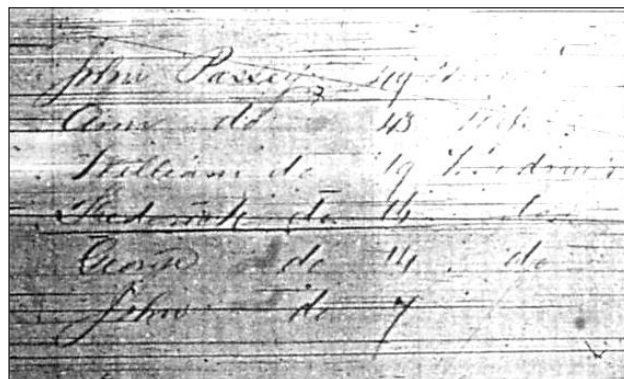 John Passey 49
Ann do 43 Wife
William do 19
Frederick do 14 do
George do 14 do
John do 7